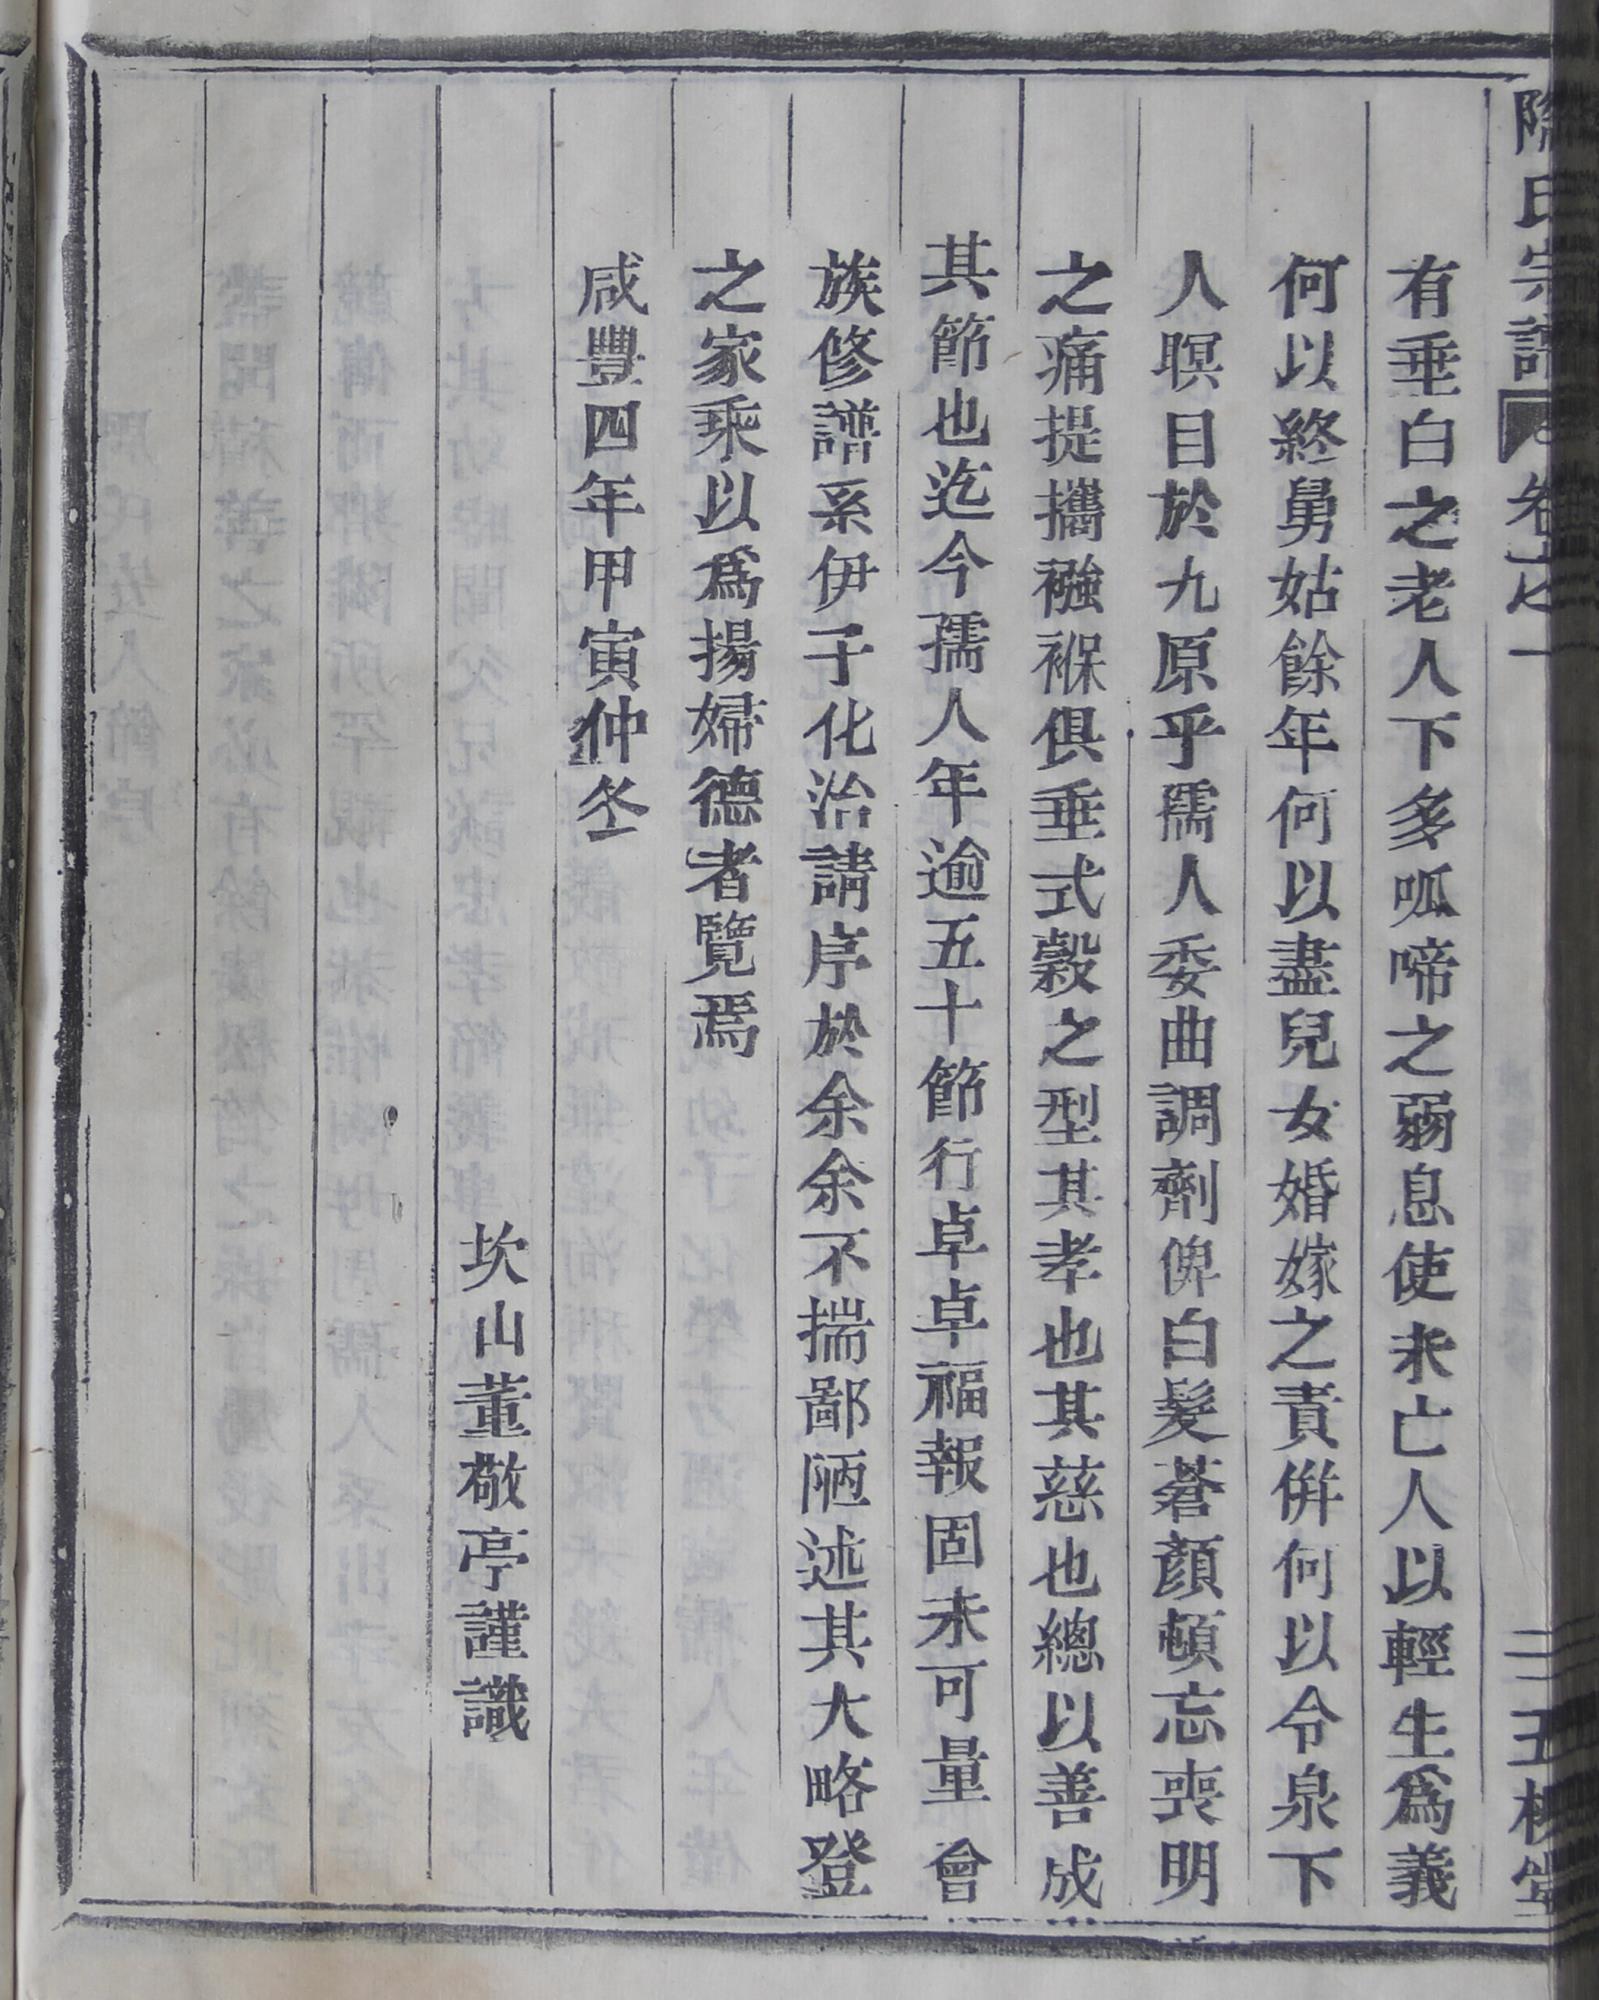 陶氏宗譜 卷之一 三 五柳堂
有垂白之老人下多呱啼之弱息使未亡人以輕生為義
何以終舅姑餘年何以盡兒女婚嫁之責併何以令泉下
人暝目於九原乎孺人委曲調劑俾白髮蒼顏頓忘喪明
之痛提攜襁褓俱垂式穀之型其孝也其慈也總以善成
其節也迄今孺人年逾五十節行卓卓福報固未可量會
族修譜系伊子化治請序於余余不揣鄙陋述其大略登
之家乘以為揚婦德者覽焉
咸豐四年甲寅仲冬
坎山董敬亭謹識